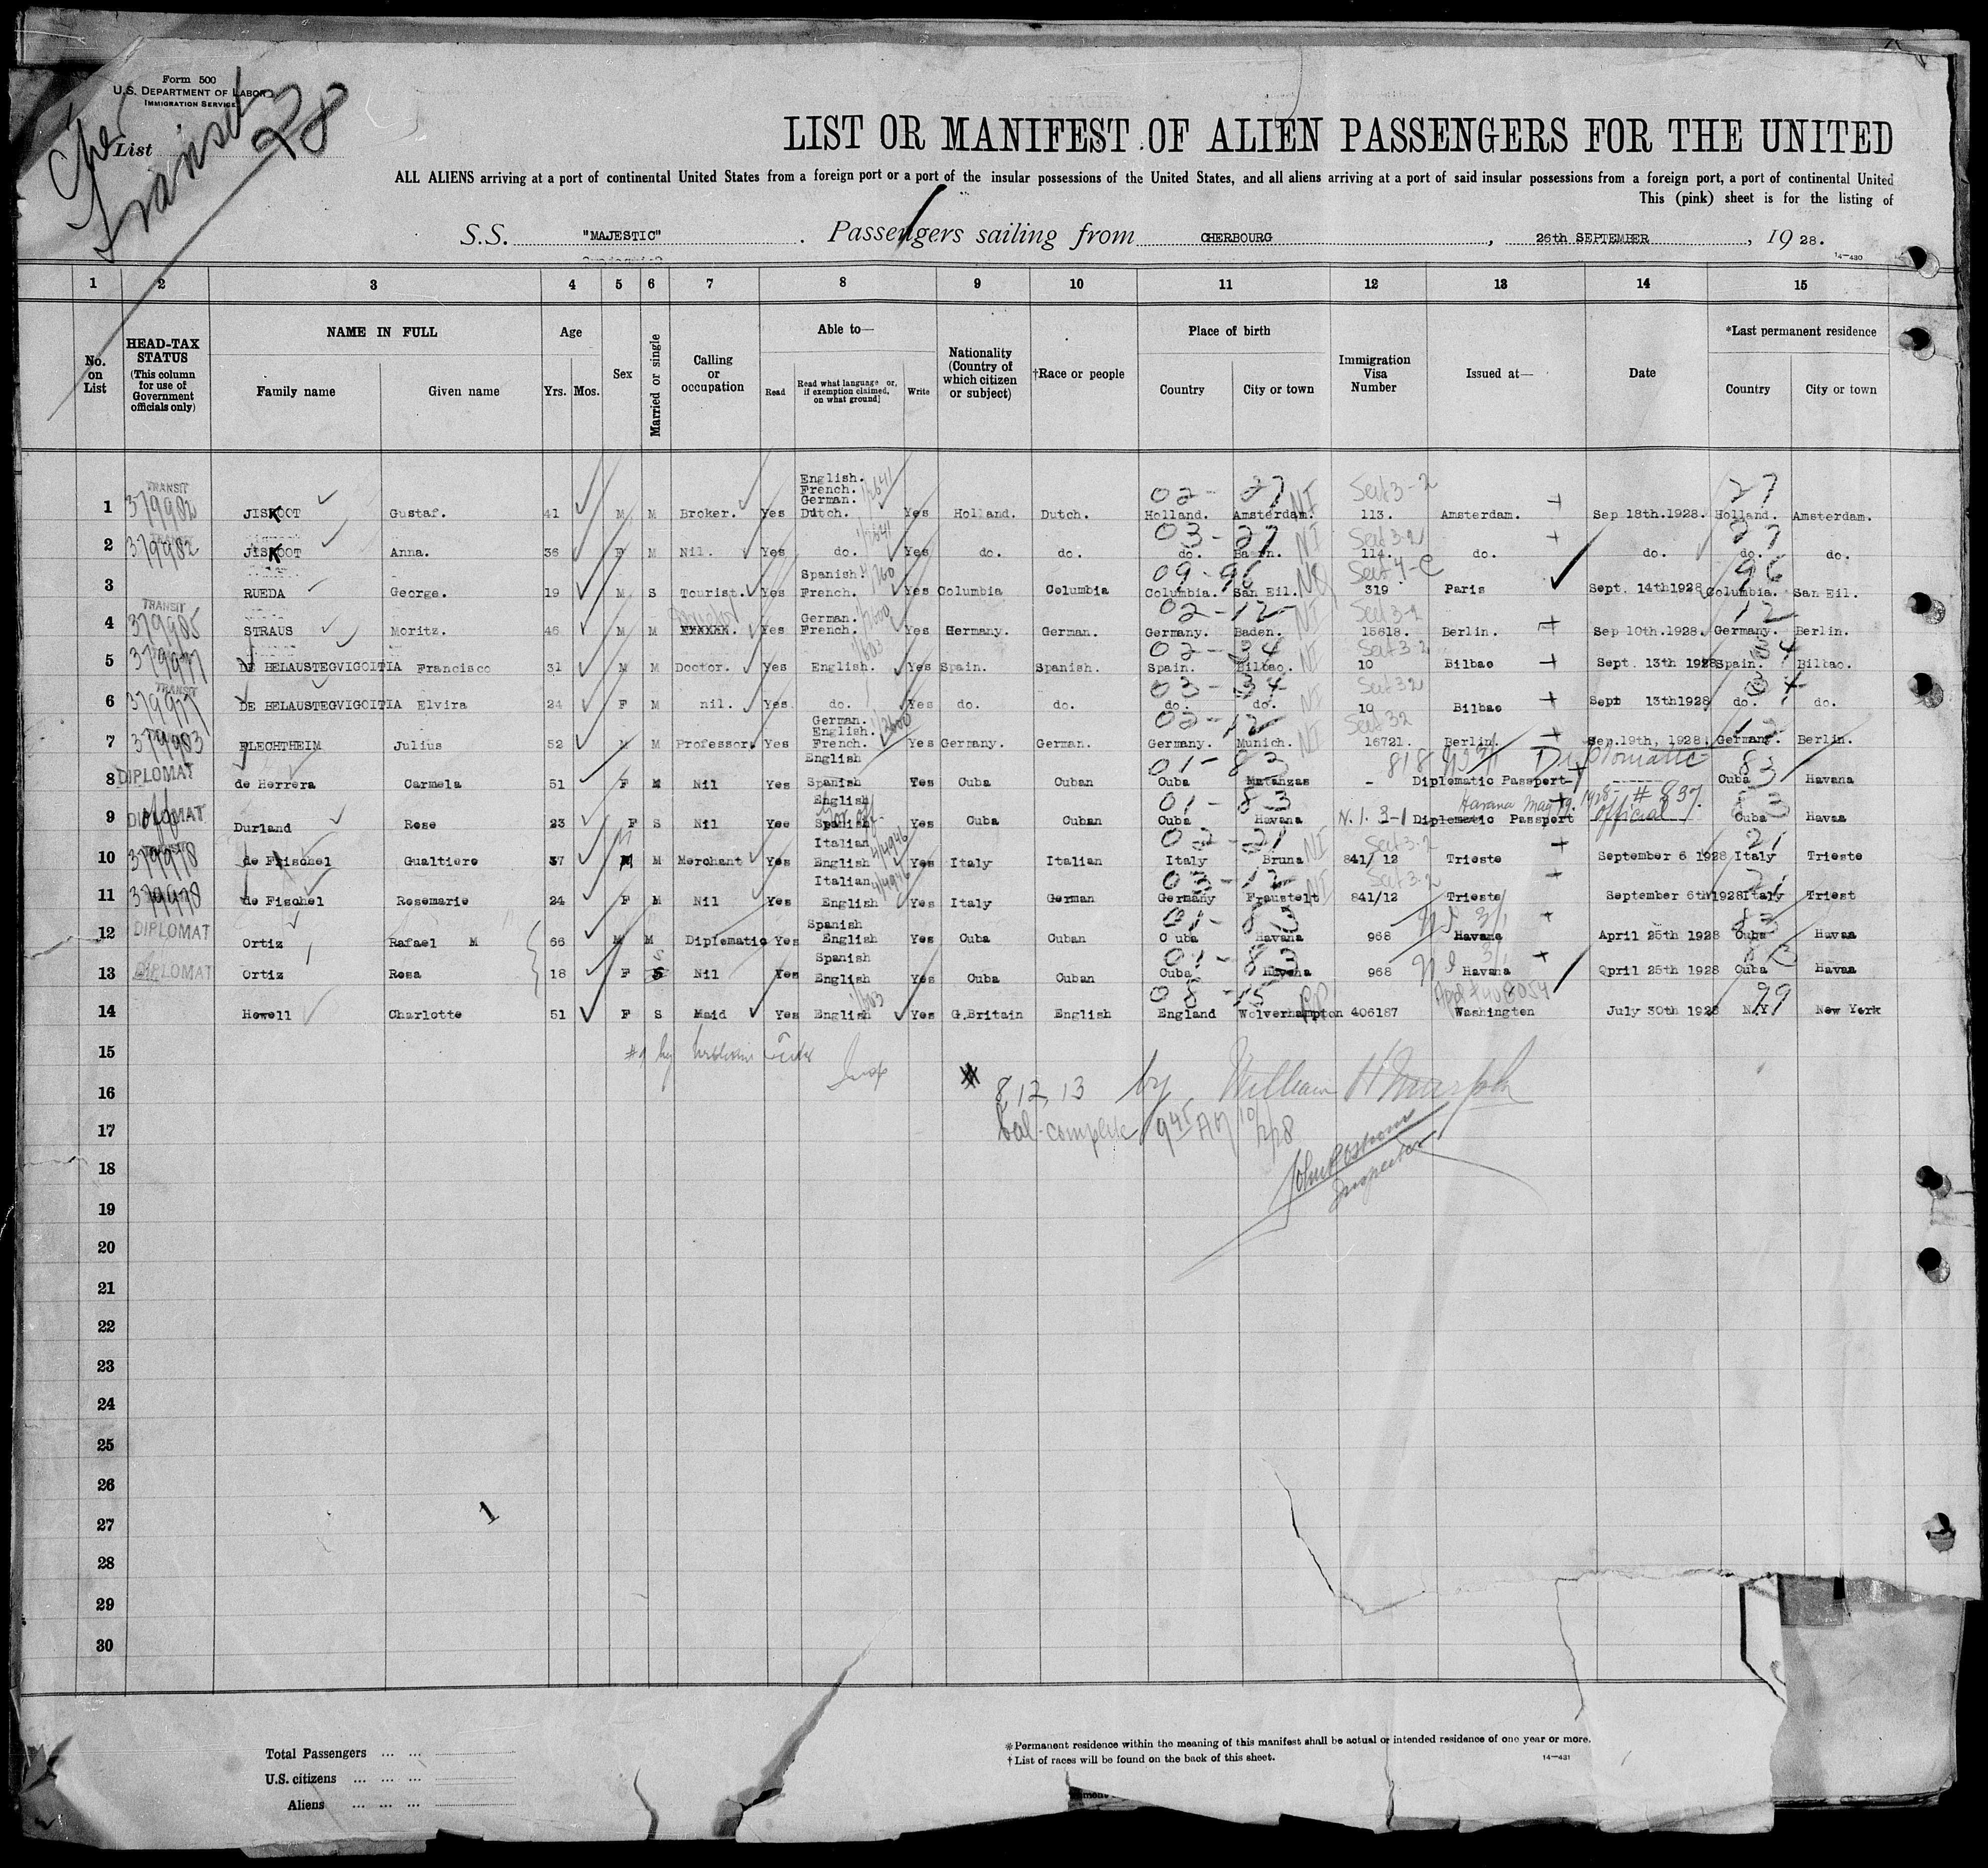 Form 500
U.S. DEPARTMENT OF LABOR
IMMIGRATION SERVICE
List
Transit 28
LIST OR MANIFEST OF ALIEN PASSENGERS FOR THE UNITED
ALL ALIENS arriving at a port of continental United States from a foreign port or a port of the insular possessions of the United States, and all aliens arriving at a port of said insular possessions from a foreign port, a port of continental United
This (pink) sheet is for the listing of
S.S. "MAJESTIC". Passengers sailing from CHERBOURG, 26th SEPTEMBER, 1928.
14—430
1 2 3 4 5 6 7 8 9 10 11 12 13 14 15
No. on List
HEAD-TAX STATUS (This column for use of Government officials only)
NAME IN FULL Family name Given name
Age Yrs. Mos.
Sex
Married or single
Calling or occupation
Able to— Read Read what language or, if exemption claimed, on what ground] Write
Nationality (Country of which citizen or subject)
†Race or people
Place of birth Country City or town
Immigration Visa Number
Issued at—
Date
*Last permanent residence Country City or town
TRANSIT 02- 27 NI Sect 3-2 27
1 379982 JISKOOT Gustaf. 41 M M Broker. Yes English. French. German. Dutch. Yes Holland. Dutch. Holland. Amsterdam. 113. Amsterdam. Sep 18th.1928. Holland. Amsterdam.
03-27 NI Sect 3-2 27
2 379982 JISKOOT Anna. 36 F M Nil. Yes do. Yes do. do. do. 114. do. do. do. do.
09-96 NQ Sect 4-C 96
3 RUEDA George. 19 M S Tourist. Yes Spanish. French. Yes Columbia Columbia Columbia. San Eil. 319 Paris Sept. 14th1928 Columbia. San Eil.
TRANSIT 02-12 NI Sect 3-2 12
4 379985 STRAUS Moritz. 46 M M Yes German. French. Yes Germany. German. Germany. Baden. 15618. Berlin. Sep 10th.1928. Germany. Berlin.
02-34 NI Sect 3-2 34
5 379977 DE BELAUSTEGVIGOITIA Francisco 31 M M Doctor. Yes English. Yes Spain. Spanish. Spain. Bilbao. 10 Bilbao Sept. 13th 1928 Spain. Bilbao.
TRANSIT 03-34 NI Sect 32 34
6 379977 DE BELAUSTEGVIGOITIA Elvira 24 F M nil. Yes do. Yes do. do. do. do. 10 Bilbao Sept 13th1928 do. do.
02-12 NI Sect 32 12
7 379983 FLECHTHEIM Julius 52 M M Professor. Yes German. English. French. Yes Germany. German. Germany. Munich. 16721. Berlin. Sep.19th, 1928. Germany. Berlin.
01-83 818 Diplomatic 83
8 DIPLOMAT de Herrera Carmela 51 F M Nil Yes English Spanish Yes Cuba Cuban Cuba Matanzas - Diplomatic Passport Cuba Havana
01-83 N.I. 3-1 Havana May 19. 1928- # 837. Official 83
9 DIPLOMAT Durland Rose 23 F S Nil Yes English Spanish Yes Cuba Cuban Cuba Havana Diplomatic Passport Cuba Havaa
02-21 NI Sect 3-2 21
10 379978 de Frischel Gualtiero 37 M M Merchant Yes Italian English Yes Italy Italian Italy Bruna 841/ 12 Trieste September 6 1928 Italy Trieste
03-12 NI Sect 3-2 21
11 379978 de Fischel Rosemarie 24 F M Nil Yes Italian English Yes Italy German Germany Fraustelt 841/12 Trieste September 6th1928 Italy Triest
01-83 NI 3/1 83
12 DIPLOMAT Ortiz Rafael M 66 M M Diplomatic Yes Spanish English Yes Cuba Cuban Cuba Havana 968 Havana April 25th 1928 Cuba Havaa
01-83 NI 3/1 83
13 DIPLOMAT Ortiz Rosa 18 F S Nil Yes Spanish English Yes Cuba Cuban Cuba Havana 968 Havana Qpril 25th 1928 Cuba Havaa
08-15 99
14 Howell Charlotte 51 F S Maid Yes English Yes G.Britain English England Wolverhampton 406187 Washington July 30th 1928 N.Y. New York
15
16 8, 12, 13 by William H Murphy
17 bal-complete 9 45 AM 10/2/28
18
Inspector
19
20
21
22
23
24
25
26
27
1
28
29
30
Total Passengers
U.S. citizens
Aliens
*Permanent residence within the meaning of this manifest shall be actual or intended residence of one year or more.
†List of races will be found on the back of this sheet.
14—431